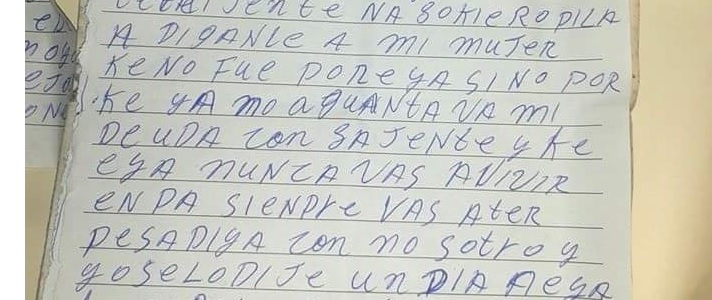 NA
A DIGANLE A MI MUJER
KE NO FUE POR EYA SI NO POR
KE YA no AGUANTAVA MI
DEUDA con SAJENte y Ke
eyA NUNCA VAS AVIVIR
EN PA SIENPre VAS AteR
PESADIYA con no sotro y
yo Se LO DIJe un DIA A eyA